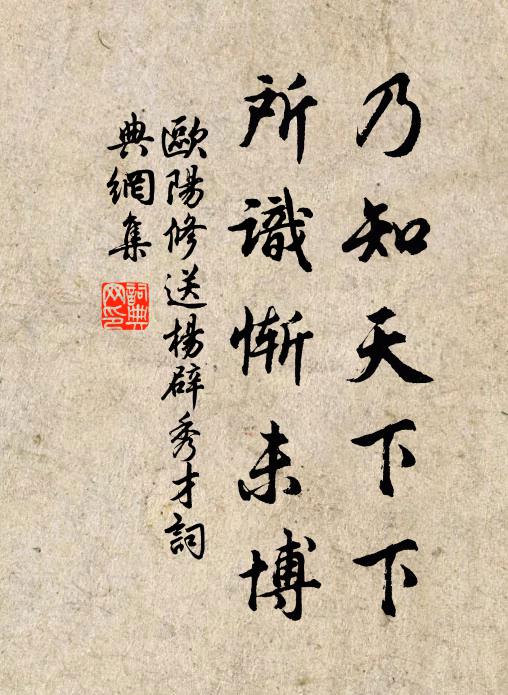 乃知天下下
所識慚未博
歐陽修送楊辟秀才詞
典網集
詞典
网印